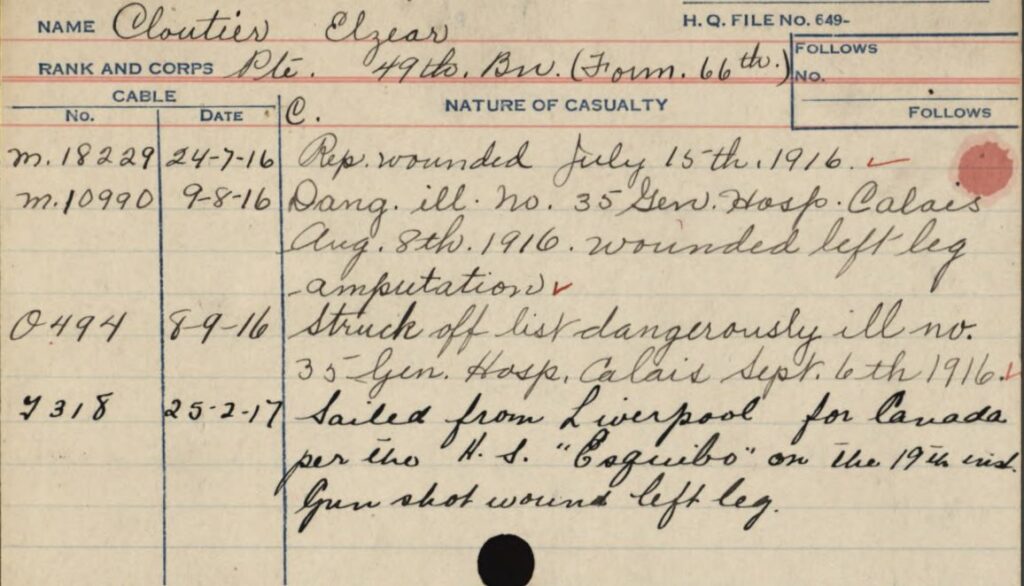 H. Q. FILE NO. 649-
NAME Cloutier Elzear
FOLLOWS
RANK AND CORPS Pte. 49th. Bn. (Form. 66th.)
No.
CABLE
NATURE OF CASUALTY
FOLLOWS
No. DATE C.
M. 18229 24-7-16 Rep. wounded July 15th. 1916.
M. 10990 9-8-16 Dang. ill. No. 35 Gen. Hosp. Calais
Aug. 8th. 1916. wounded left leg
amputation
O 494 8-9-16 Struck off list dangerously ill no.
35 Gen. Hosp. Calais Sept. 6th 1916.
318 25-2-17 Sailed from Liverpool for Canada
per the H. S. "Esquibo" on the 19th inst.
Gun shot wound left leg.